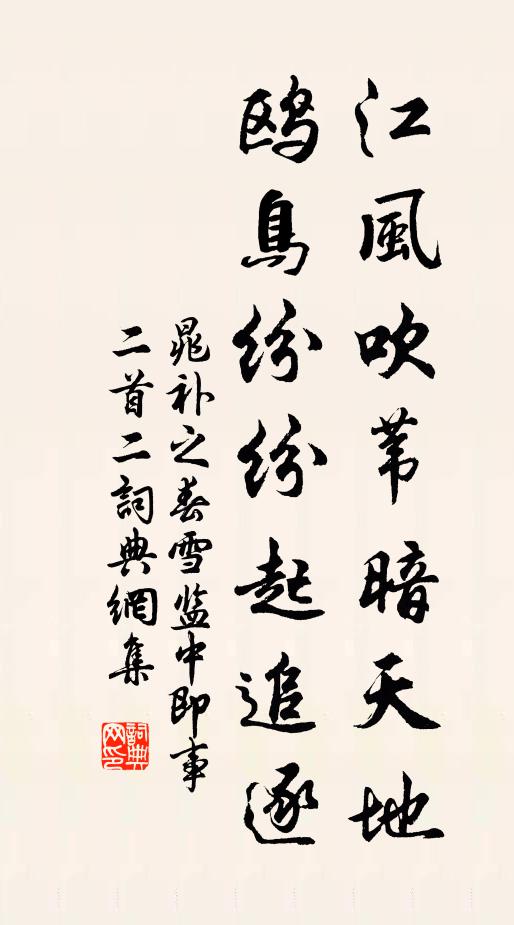 江風吹苇暗天地
鸥鳥纷纷起追逐
晁补之春雪监中即事
二首二詞典網集
詞典
网印